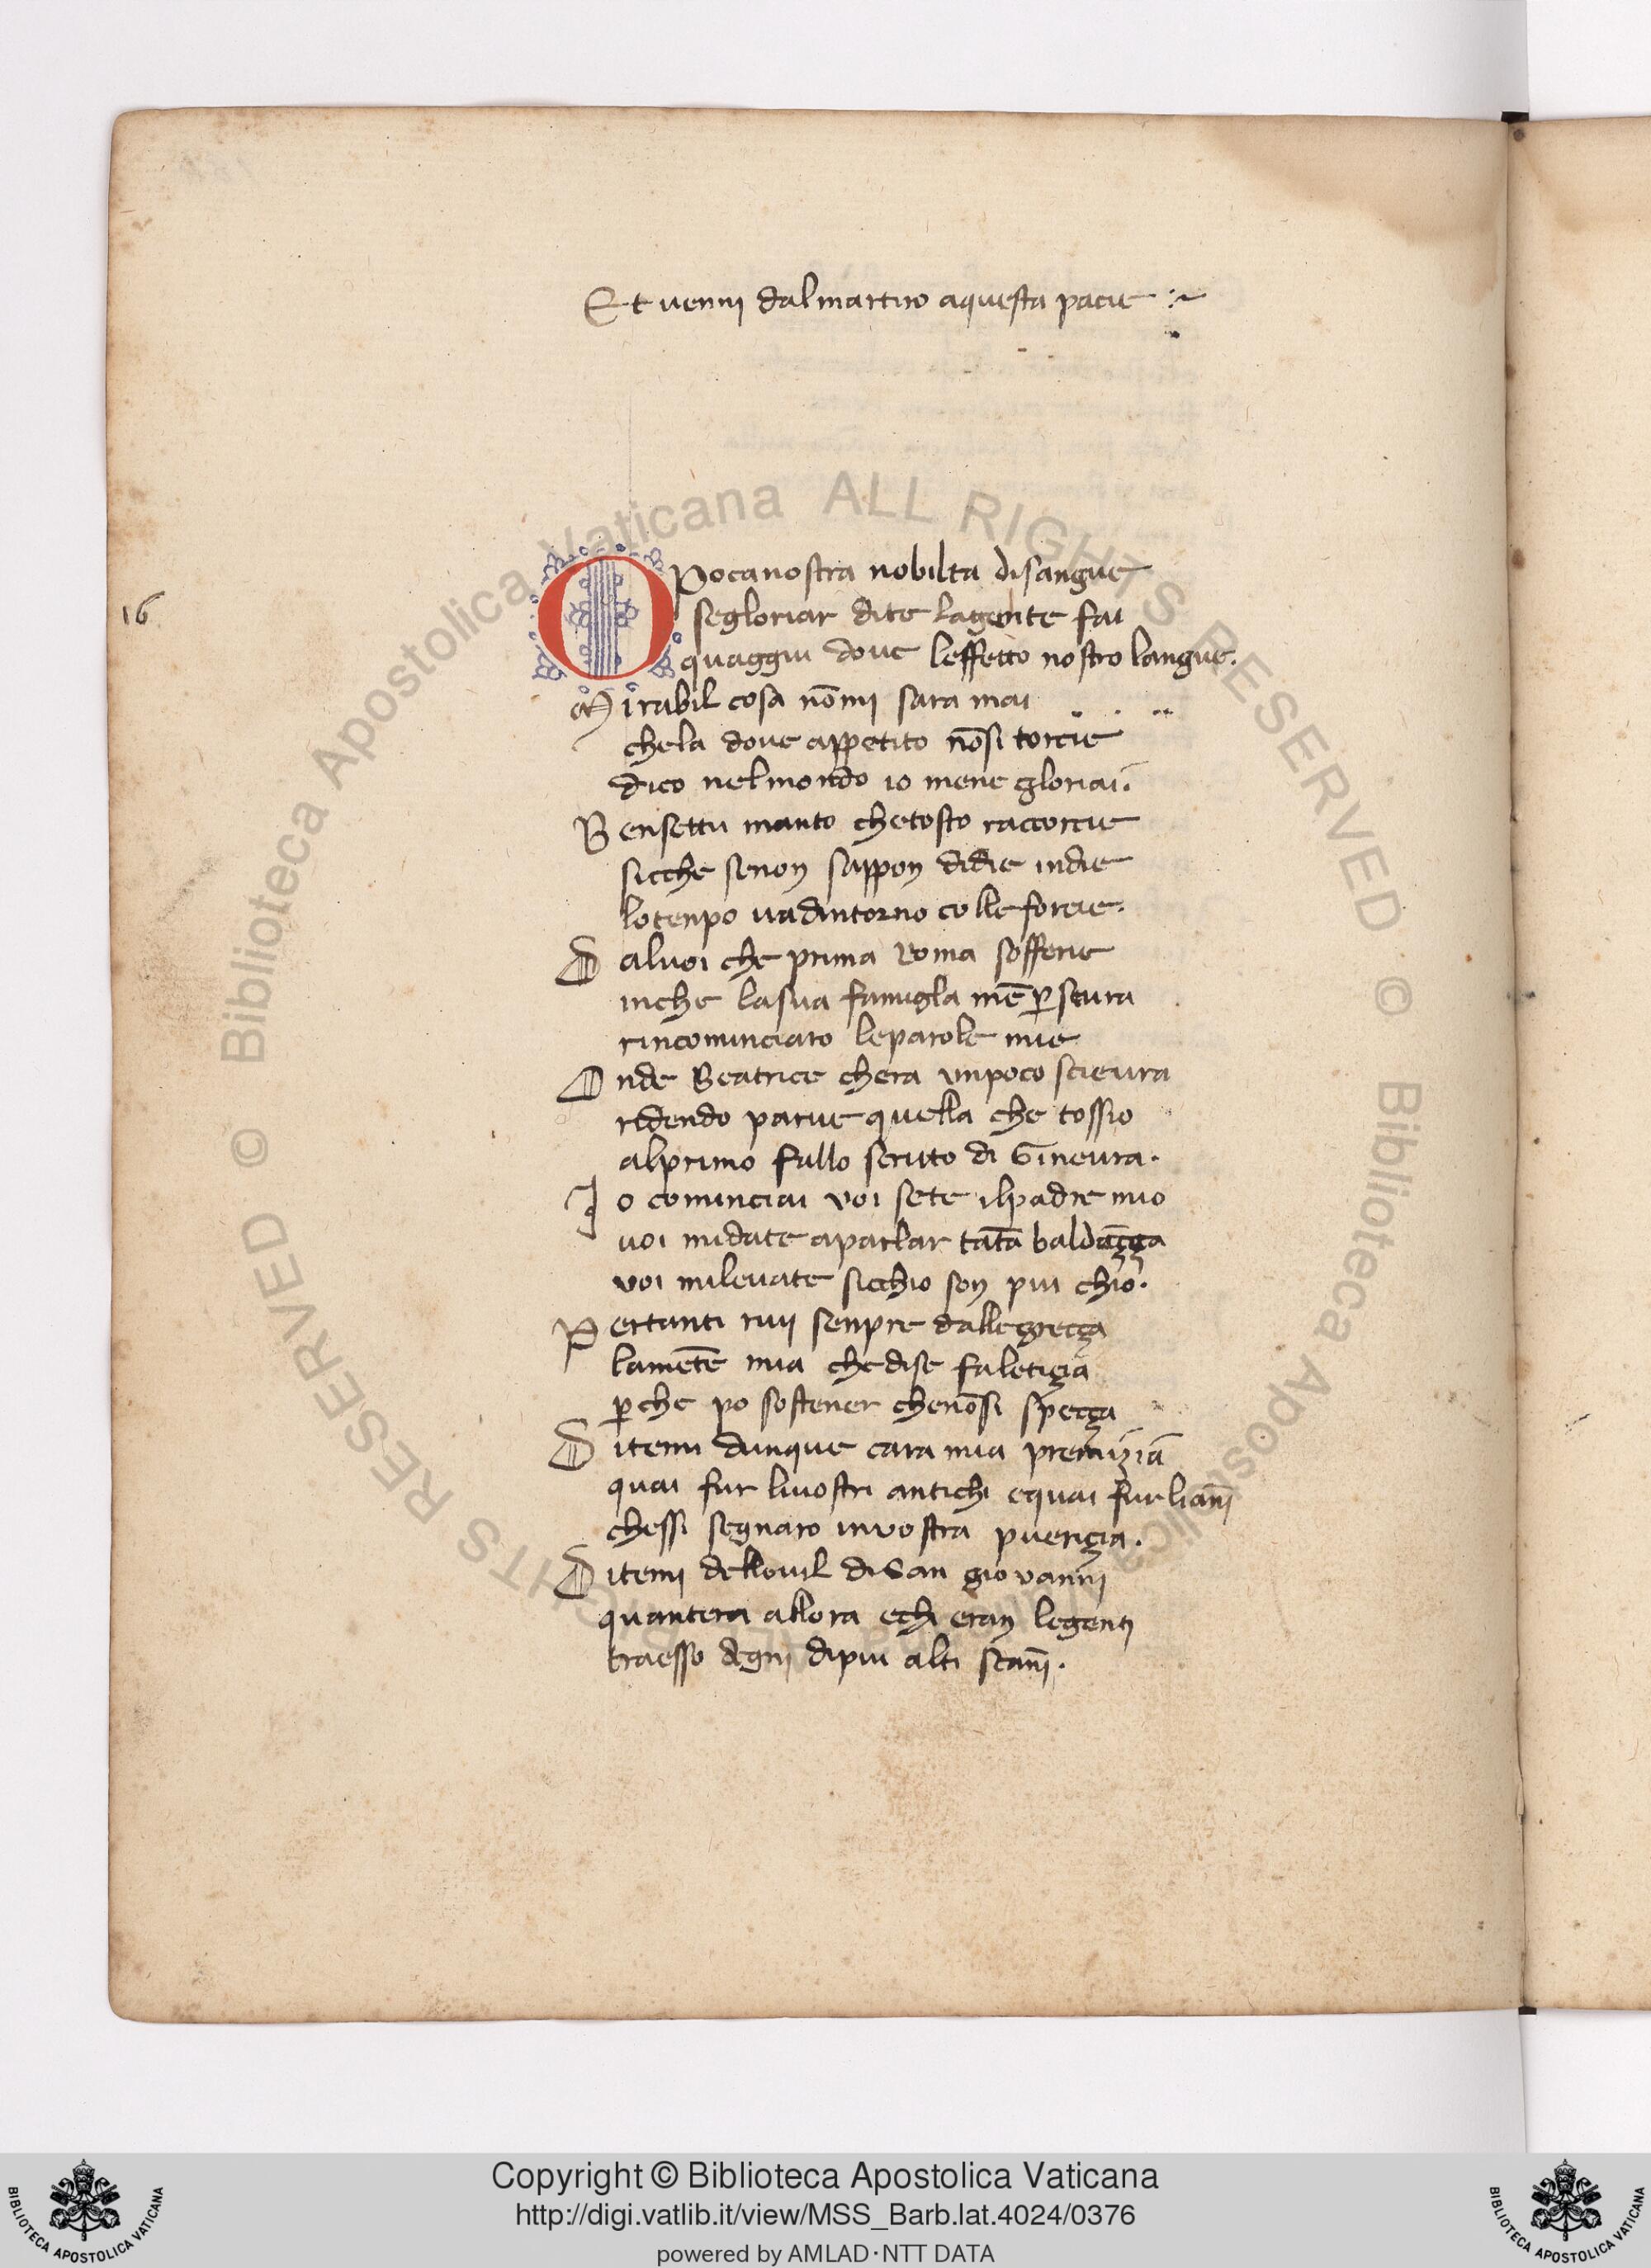 Et uenni dalmartiro aquesta pacie :~
16
O Pocanostra nobilta disangue
segloriar dite lagente fai
quaggiu doue leffetto nostro langue.
Mirabil cosa nōmi sara mai
chela doue appetito nōsi torcie
dico nelmondo io mene gloriai.
Bensettu manto chetosto raccorcie
sicche senon sappon didie indie
lotenpo uadintorno colleforcie.
Daluoi che prima roma sofferie
inche lasua famigla mē ꝑseura
rincominciaro leparole mie
Onde Beatrice chera unpoco scieura
ridendo parue quella che tossio
alprimo fallo scritto di Gineura.
Io cominciai voi sete ilpadre mio
uoi midate aparlar tāta baldāçça
voi mileuate sicchio son piu chio.
Pertanti riui senpre dallegreçça
lamētē mia chedise faletiçia
ꝑche po sostener chenōsi speçça
Ditemi dunque cara mia premiziā
quai fur liuostri antichi equai furlianni
chessi segnaro inuostra puericia.
Ditemi dellouil disan giovanni
quantera allora echi eran legenti
traesso degni dipiu alti scanni.
© Biblioteca Apostolica Vaticana ALL RIGHTS RESERVED © Biblioteca Apostolica Vaticana ALL RIGHTS RESERVED
Copyright © Biblioteca Apostolica Vaticana
http://digi.vatlib.it/view/MSS_Barb.lat.4024/0376
powered by AMLAD·NTT DATA
BIBLIOTECA APOSTOLICA VATICANA
BIBLIOTECA APOSTOLICA VATICANA